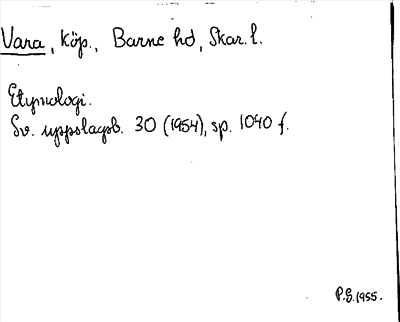 Vara, Köp., Barne hd, Skar. l.
Etymologi.
Sv. uppslagsb. 30 (1954), sp. 1040 f.
P.G. 1955.